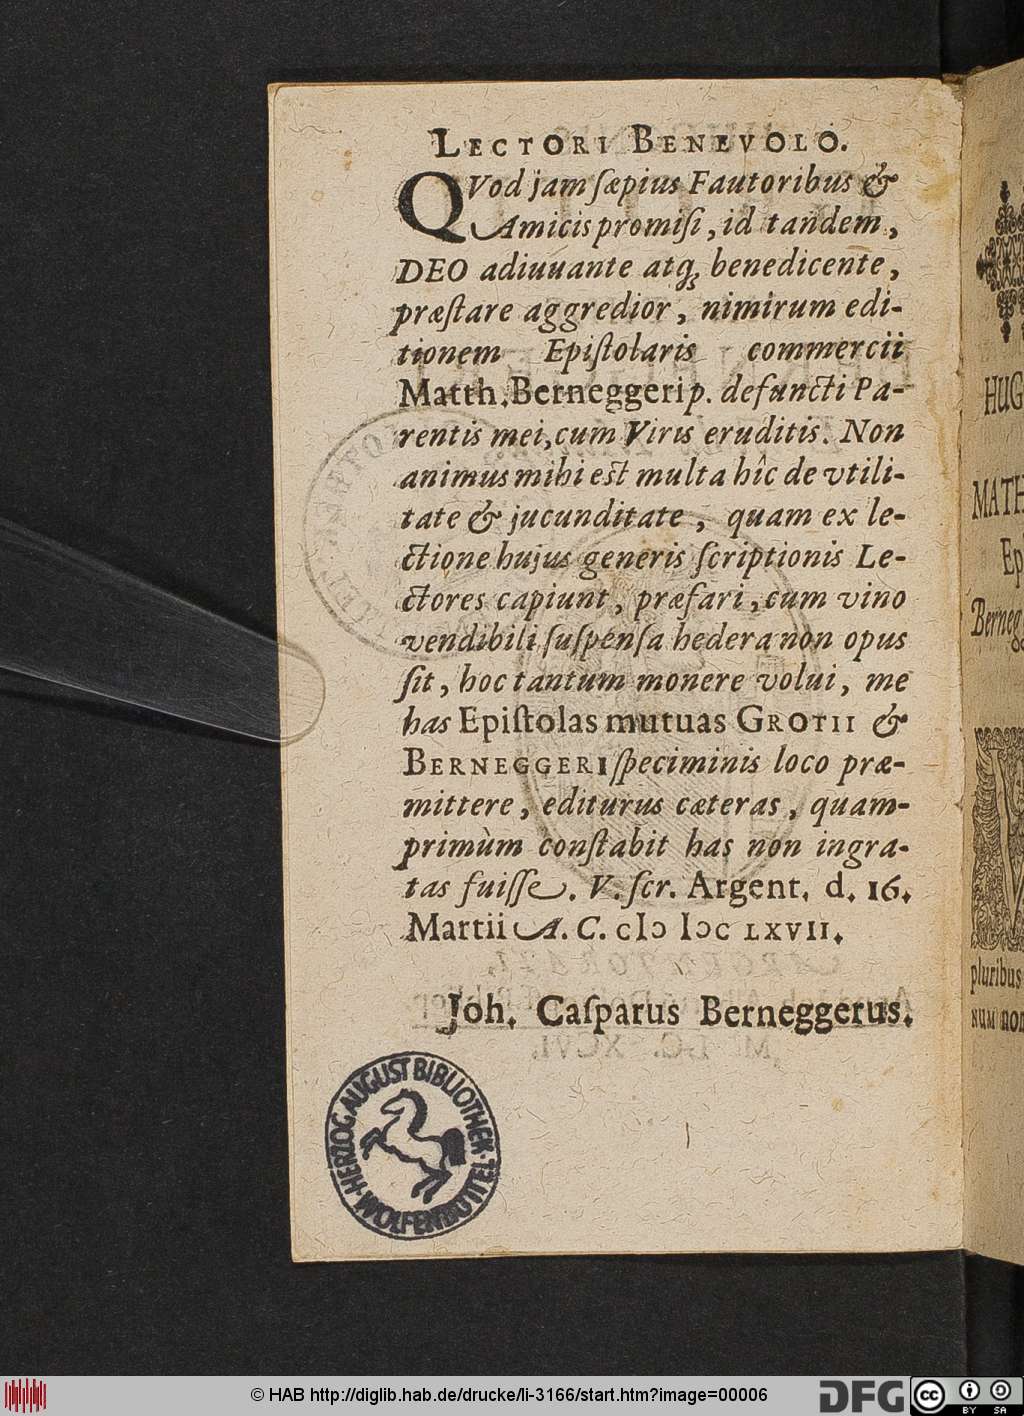 LECTORI BENEVOLO.
QVod jam sæpius Fautoribus &
Amicis promiſi, id tandem,
DEO adiuuante atq; benedicente,
præſtare aggredior, nimirum edi-
tionem Epiſtolaris commercii
Matth. Berneggeri p. defuncti Pa-
rentis mei, cum Viris eruditis. Non
animus mihi eſt multa hîc de vtili-
tate & jucunditate, quam ex le-
ctione hujus generis ſcriptionis Le-
ctores capiunt, præfari, cum vino
vendibili ſuſpenſa hedera non opus
ſit, hoc tantum monere volui, me
has Epiſtolas mutuas GROTII &
BERNEGGERI ſpeciminis loco præ-
mittere, editurus cæteras, quam-
primùm conſtabit has non ingra-
tas fuiſſe. V. ſcr. Argent. d. 16.
Martii A. C. cIɔ Iɔc LXVII.
Joh. Caſparus Berneggerus.
HERZOG AUGUST BIBLIOTHEK
WOLFENBÜTTEL
HUG
MATH
Ep
Berneg
pluribus
NUM non
© HAB http://diglib.hab.de/drucke/li-3166/start.htm?image=00006
DFG
cc
BY SA